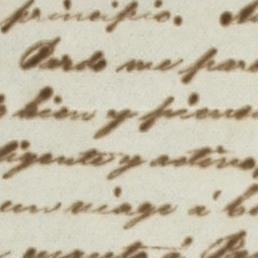 principio.
Pardo me par
bien y piens
ligente y activo,
un viage á
cuanto á